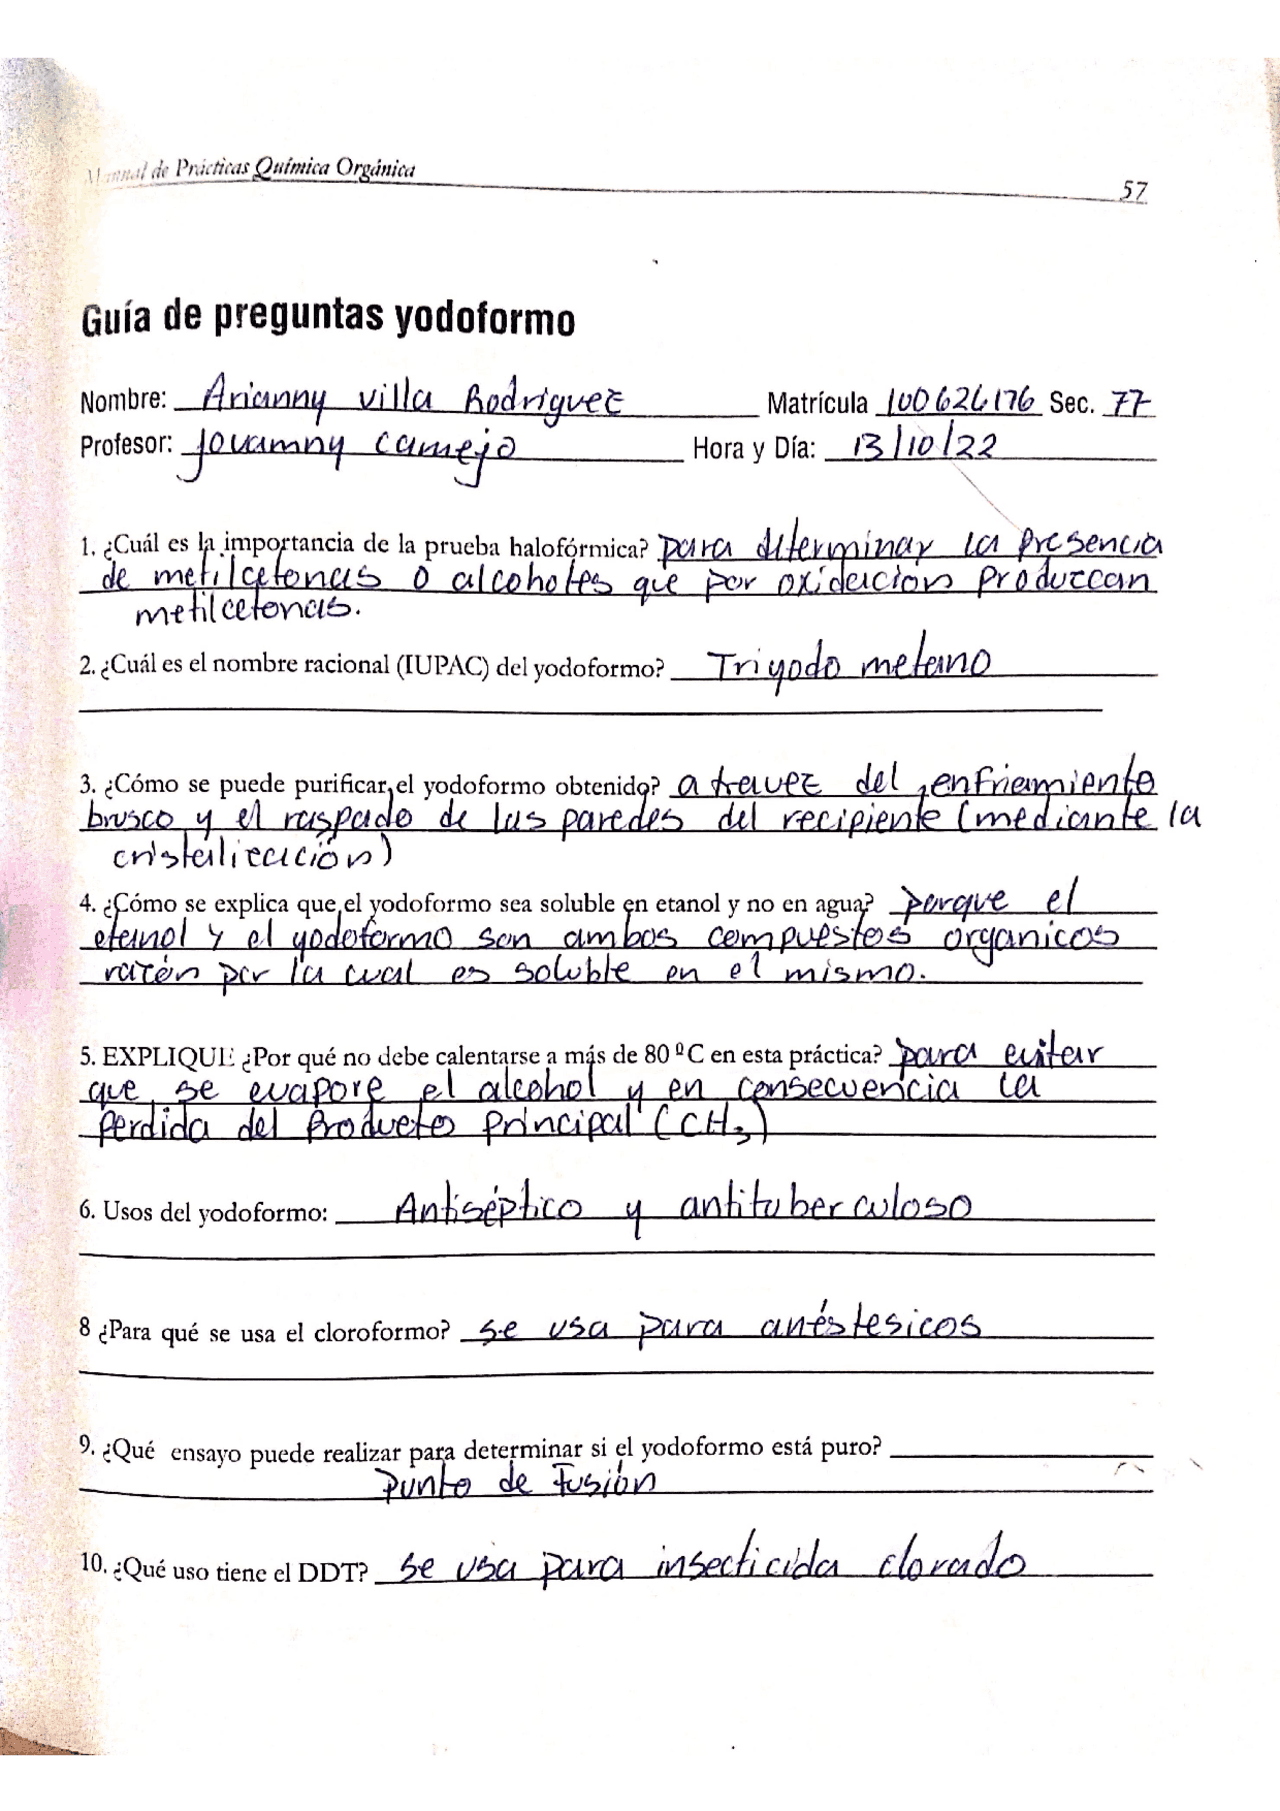 Manual de Prácticas Química Orgánica
57
Guía de preguntas yodoformo
Nombre: Arianny villa Rodriguez Matrícula 100626176 Sec. 77
Profesor: Jovanny camejo Hora y Día: 13/10/22
1. ¿Cuál es la importancia de la prueba halofórmica? para determinar la presencia
de metilcetonas o alcoholes que por oxidacion produzcan
metilcetonas.
2. ¿Cuál es el nombre racional (IUPAC) del yodoformo? Triyodo metano
3. ¿Cómo se puede purificar el yodoformo obtenido? a travez del enfriamiento
brusco y el raspado de las paredes del recipiente (mediante la
cristalización)
4. ¿Cómo se explica que el yodoformo sea soluble en etanol y no en agua? porque el
etanol y el yodoformo son ambos compuestos organicos
razón por la cual es soluble en el mismo.
5. EXPLIQUE ¿Por qué no debe calentarse a más de 80 ºC en esta práctica? para evitar
que se evapore el alcohol y en consecuencia la
perdida del producto principal (CH₃)
6. Usos del yodoformo: Antiséptico y antituberculoso
8 ¿Para qué se usa el cloroformo? se usa para anéstesicos
9. ¿Qué ensayo puede realizar para determinar si el yodoformo está puro?
punto de Fusión
10. ¿Qué uso tiene el DDT? se usa para insecticida clorado